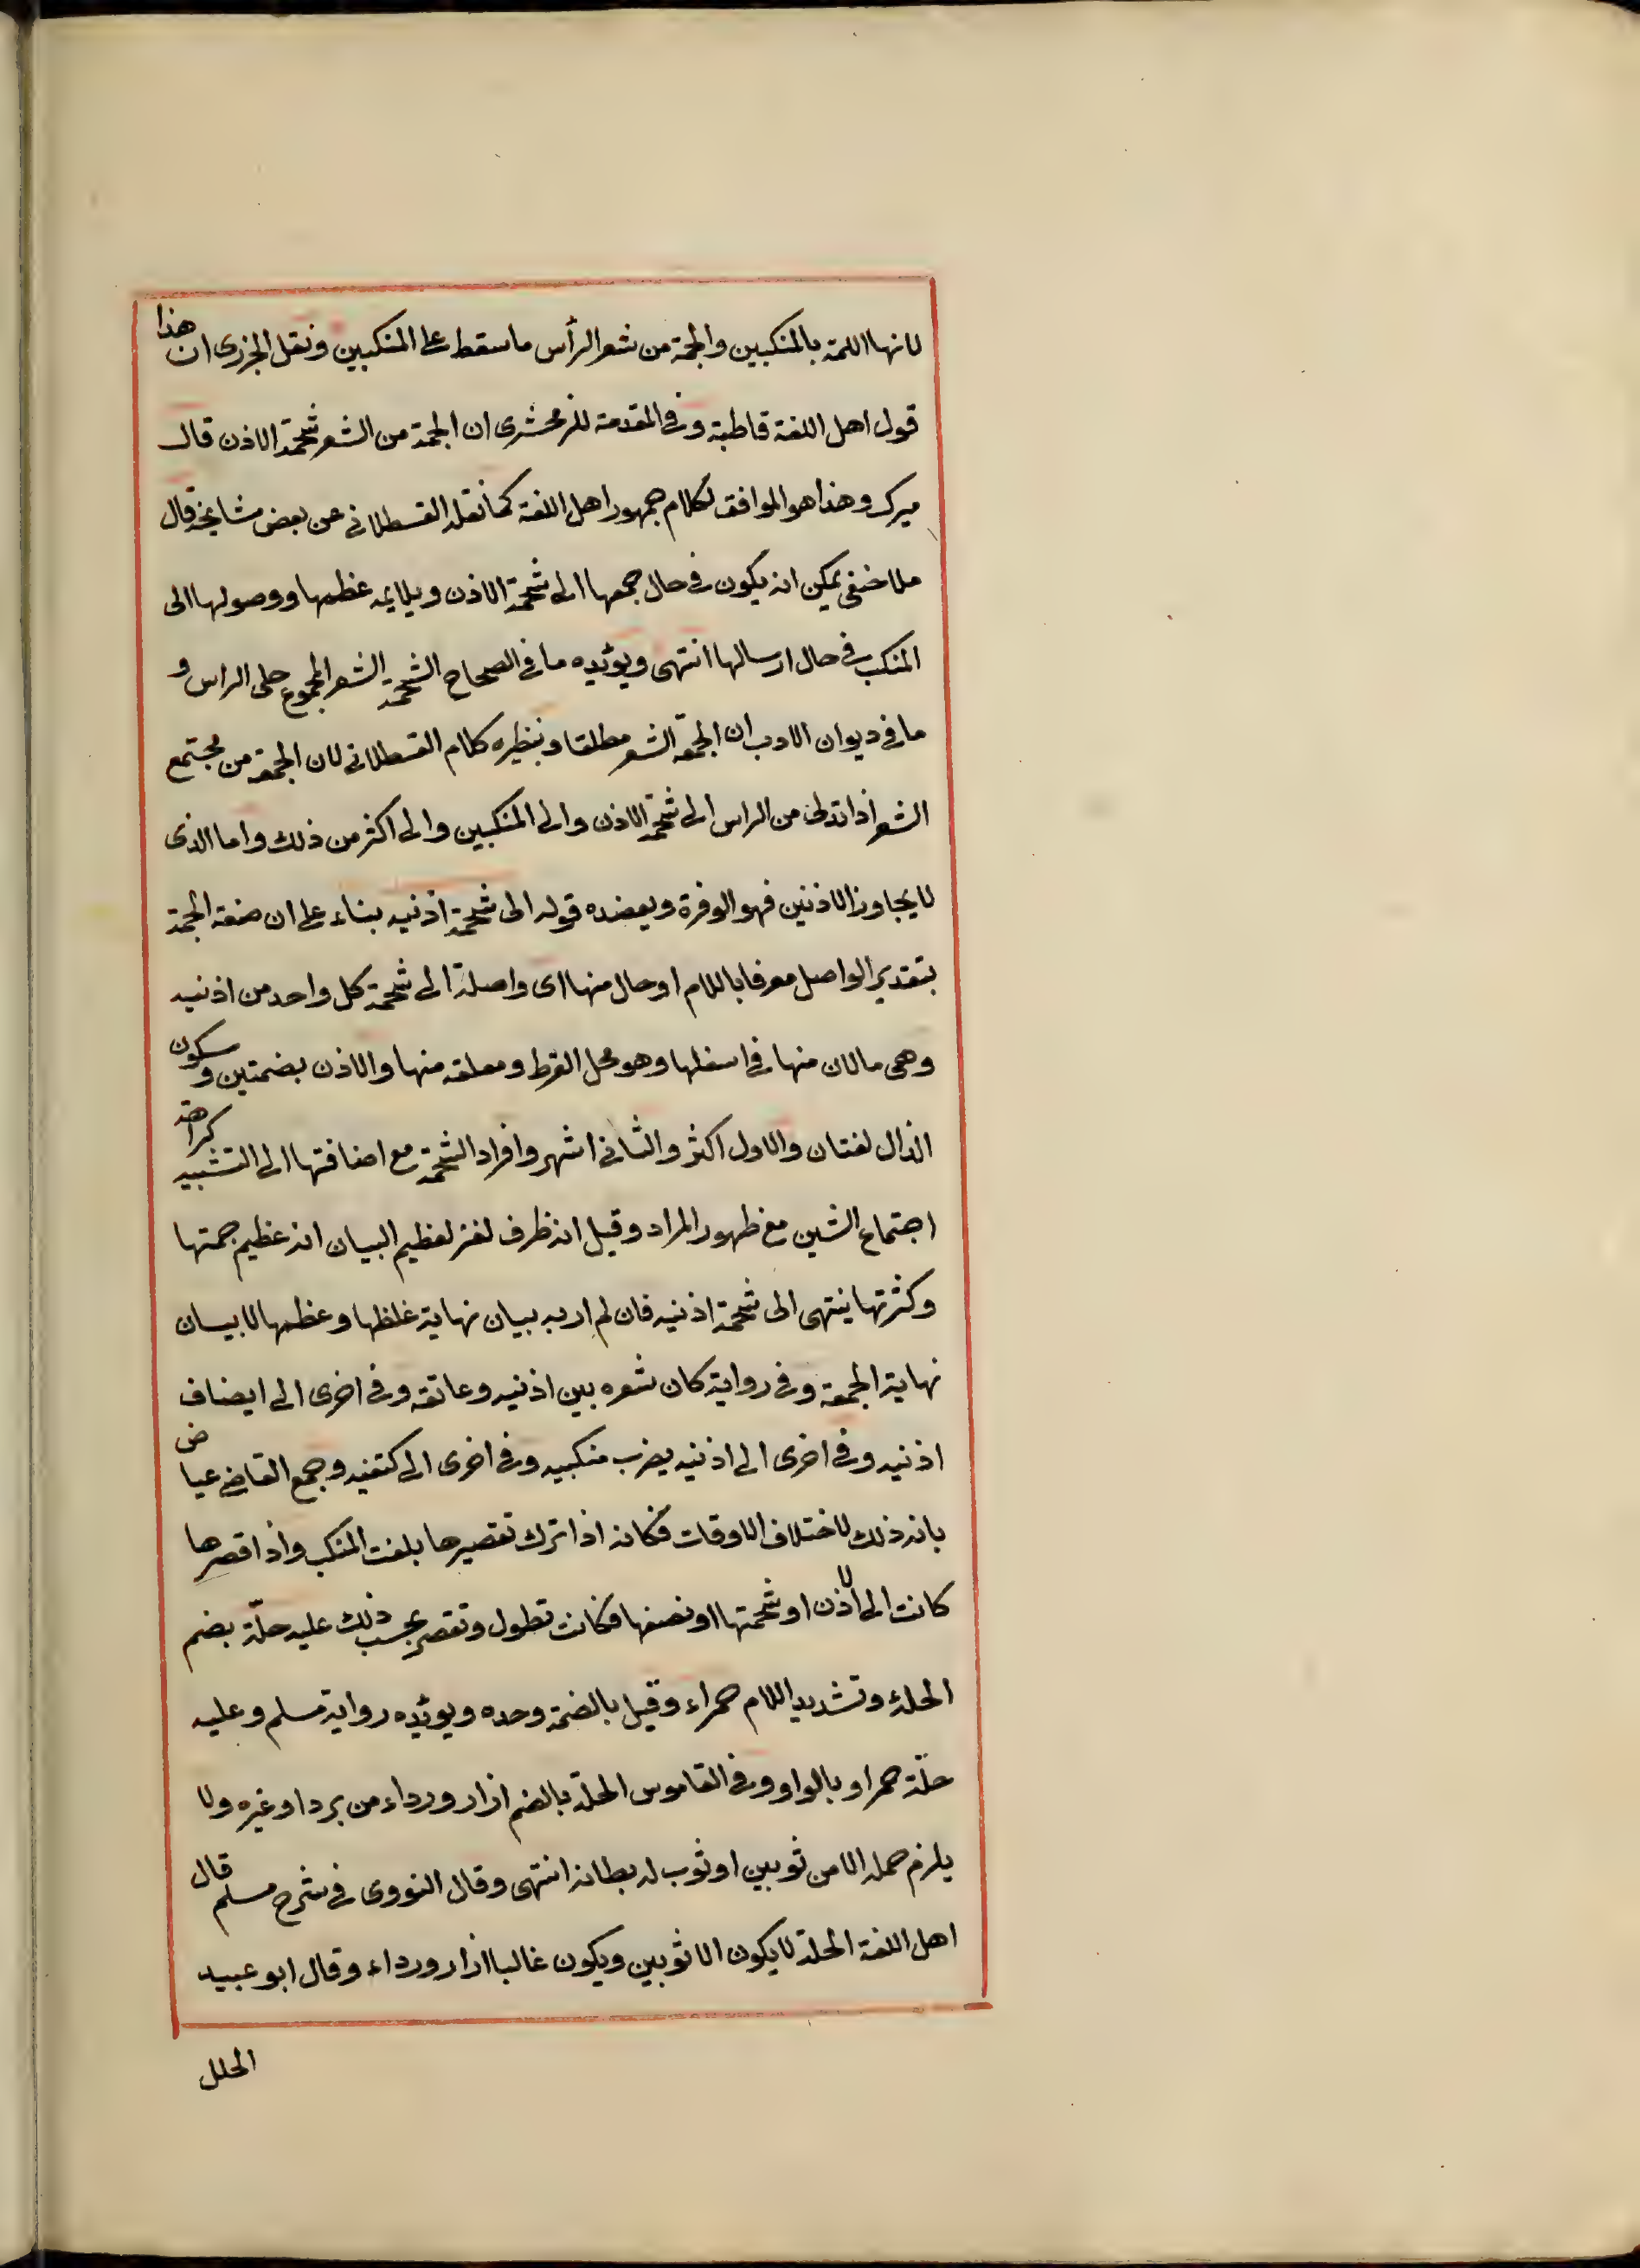 لانها اللمة بالمنكبين والجمة من شعر الرأس ما سقط على المنكبين ونقل الجزرى ان هذا
قول اهل اللغة قاطبة وفى المقدمة للزمخشرى ان الجمة من الشعر شحمة الاذن قال
ميرك وهذا هو الموافق لكلام جمهور اهل اللغة كما نقله القسطلانى عن بعض مشايخه قال
ملا حنفى يمكن انه يكون فى حال جمعها الى شحمة الاذن ويلايمه عظمها ووصولها الى
المنكب فى حال ارسالها انتهى ويؤيده ما فى الصحاح الشحمة الشعر المجموع على الراس و
ما فى ديوان الادب ان الجمة الشعر مطلقا وبنظيره كلام القسطلانى لان الجمة من مجتمع
الشعر اذا تدلى من الراس الى شحمة الاذن والى المنكبين والى اكثر من ذلك واما الذى
لا يجاوز الاذنين فهو الوفرة ويعضده قوله الى شحمة اذنيه بناء على ان صنعة الجمة
بتقدير الواصل معرفا باللام او حال منها اى واصلة الى شحمة كل واحد من اذنيه
وهى ما لان منها فى اسفلها وهو محل القرط ومعلقه منها والاذن بضمتين وسكون
الذال لغتان والاول اكثر والثانى اشهر وافراد الشحمة مع اضافتها الى التثنيه كراهة
اجتماع الشين مع ظهور المراد وقيل انه ظرف لغز لعظيم البيان انه عظيم جمتها
وكثرتها ينتهى الى شحمة اذنيه فان لم اربه ببيان نهاية غلظها وعظمها لا بيسان
نهاية الجمة وفى رواية كان شعره بين اذنيه وعاتقه وفى اخرى الى ايضاف
اذنيه وفى اخرى الى اذنيه يضرب منكبيه وفى اخرى الى كتفيه وجمع القاضى عياض
بانه ذلك لاختلاف الاوقات فكانه اذا ترك تقصيرها بلغت المنكب واذا قصرها
كانت الى الاذن او شحمتها او نصفها فكانت تطول وتقصر بحسب ذلك عليه حلّة بضم
الحلة وتشديد اللام حمراء وقيل بالضمة وحده ويؤيده رواية مسلم وعليه
حلّة حمراو بالواو وفى القاموس الحلة بالضم ازار ورداء من برد او غيره ولا
يلزم حمله الا من ثوبين او ثوب له بطانة انتهى وقال النووى فى شرح مسلم قال
اهل اللغة الحلة لا يكون الا ثوبين ويكون غالبا ازار ورداء وقال ابو عبيد
الحلل